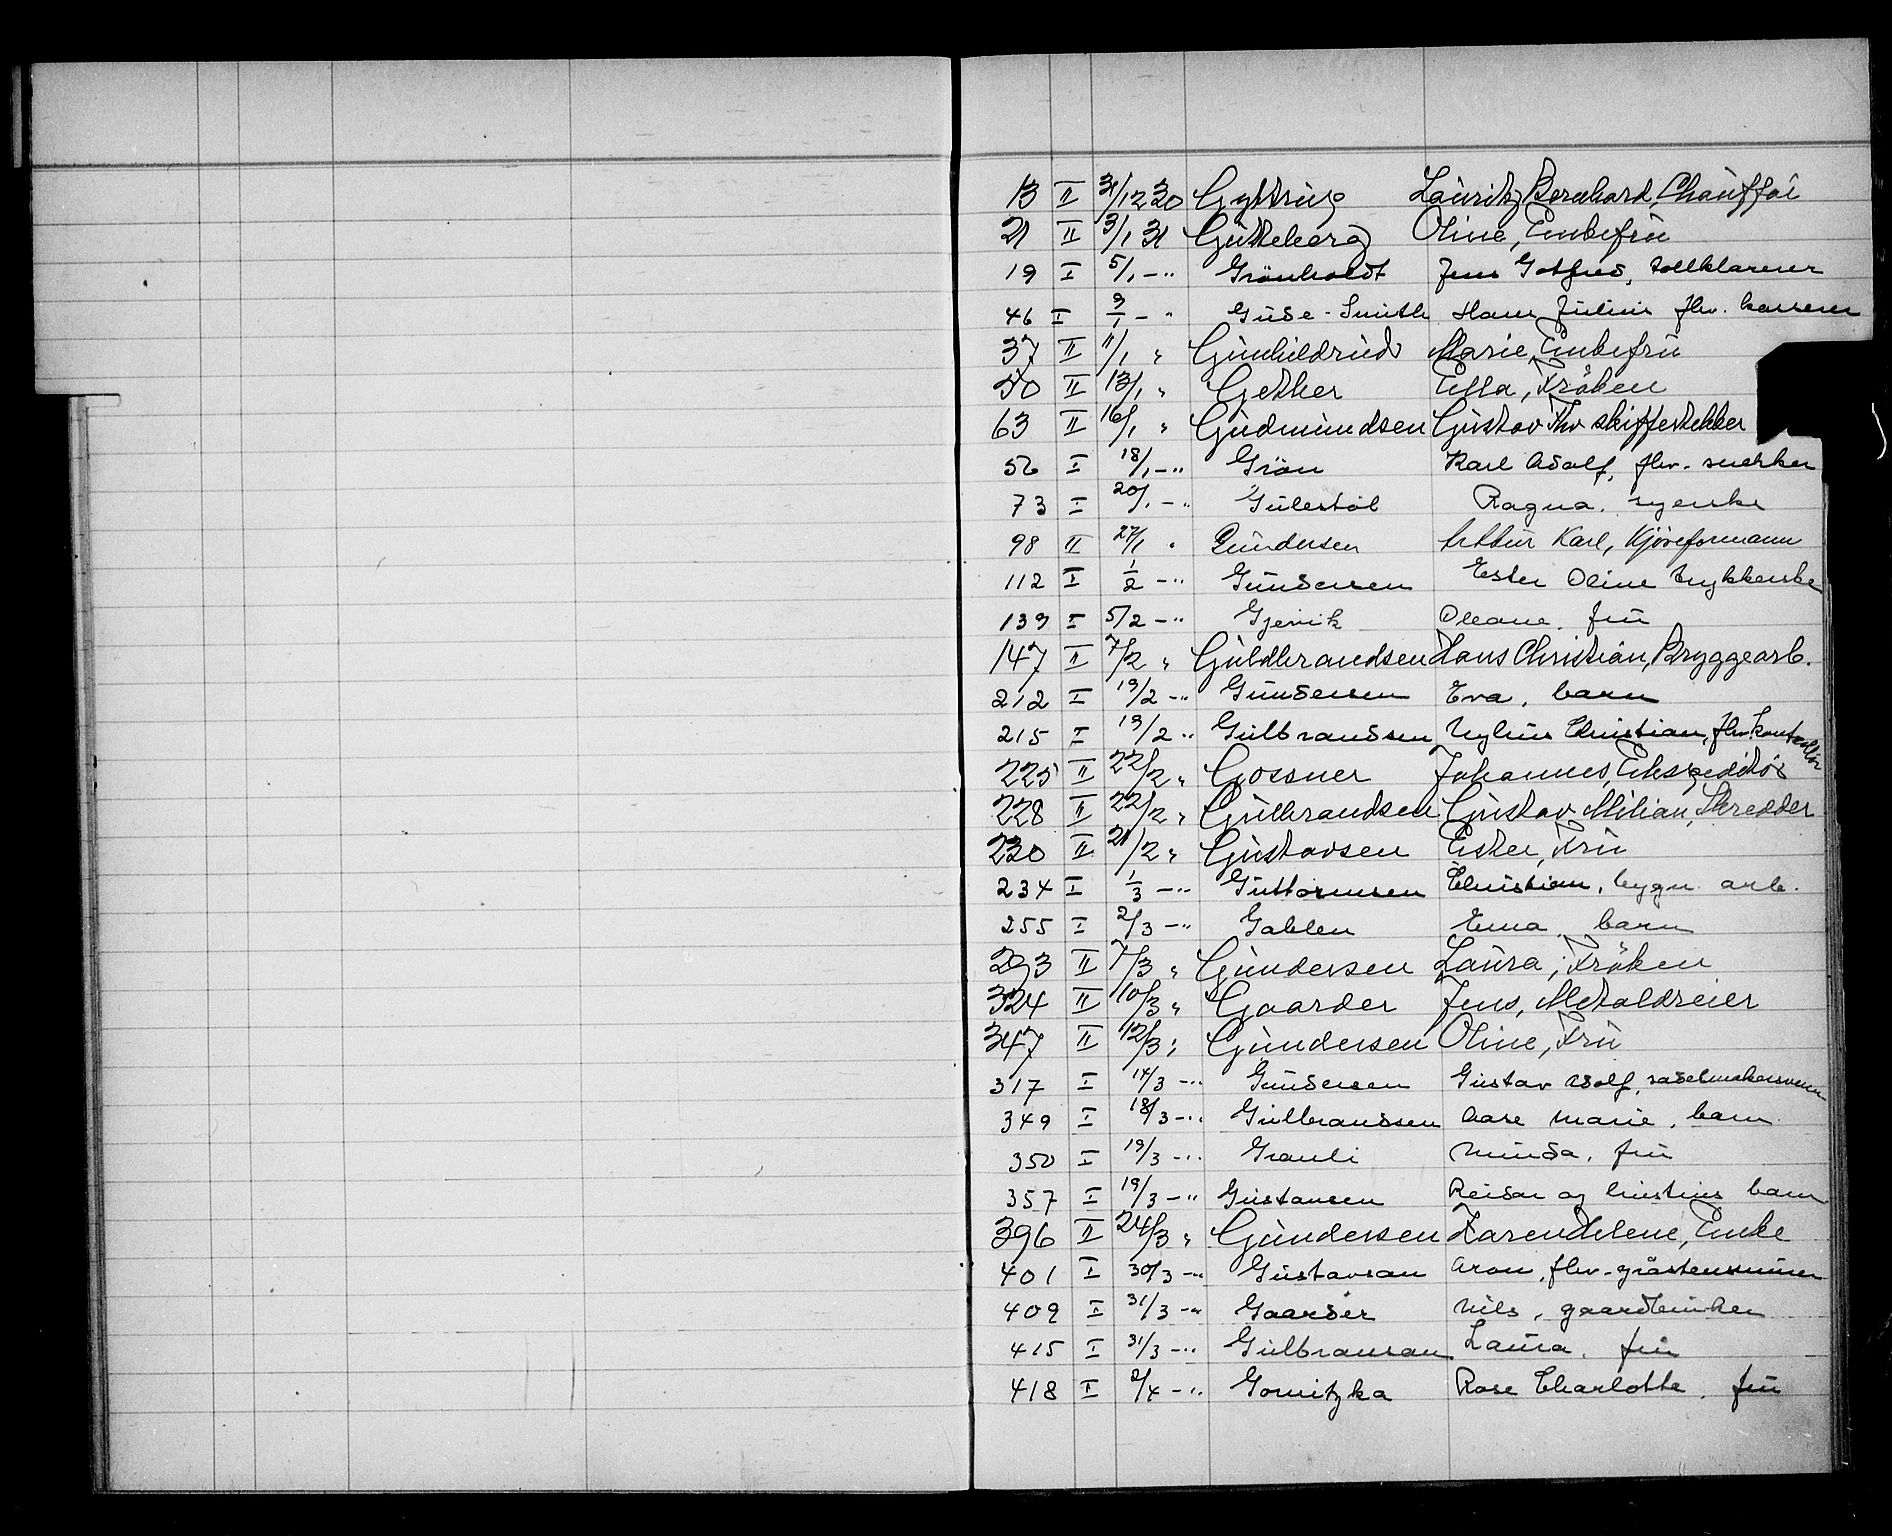 13 II 31/12 30 Gyltrup Lauritz Bernhard, Chauffør
21 II 3/1 31 Gutteberg Oline, Enkefru
19 I 5/1 -" Grönholdt Jens Gotfred, tollklarerer
46 I 9/1 - " Gude-Smith Hans Julius fhv. kasserer
37 II 11/1 " Gunhildrud Marie, Enkefru
50 II 13/1 " Gether Ella, Fröken
63 II 16/1 " Gudmundsen Gustav Thv skiffertekker
56 I 18/1 -" Grön Karl Adolf, fhv. snekker
73 I 20/1 -" Gulestöl Ragna, syerske
98 II 27/1 " Gundersen Arthur Karl, Kjöreformann
112 I 1/2 -" Gundersen Ester Oline trykkerske
139 I 5/2 -" Gjervik Oleane, fru
147 II 7/2 " Guldbrandsen Hans Christian, Bryggearb.
212 I 19/2 -" Gundersen Eva, barn
215 I 19/2 " Gulbrandsen Christian, fhv. kontrollör
225 II 22/2 " Gossner Johannes, Ekspeditör
228 II 22/2 " Gulbrandsen Gustav Milian, Skredder
230 II 21/2 " Gustavsen Ester, Fru
234 I 1/3 -" Guttormsen Christian, bygn. arb.
255 I 2/3 -" Gahlen Erna, barn
293 II 7/3 " Gundersen Laura, Fröken
324 II 10/3 " Gaarder Jens, Metaldreier
347 II 12/3 " Gundersen Oline, Fru
317 I 14/3 -" Gundersen Gustav Adolf, sadelmakersvenn
349 I 18/3 -" Gulbrandsen Aase Marie, barn
350 I 19/3 -" Granli Minda, fru
357 I 19/3 -" Gustavsen Reidar og barn
396 II 24/3 " Gundersen Karen Helene, Enke
401 I 30/3 -" Gustavsen Aron, fhv.
409 I 31/3 -" Gaarder Nils, gaardbruker
415 I 31/3 -" Gulbransen Laura, fru
418 I 2/4 -" Gomitzka Rose Charlotte, fru